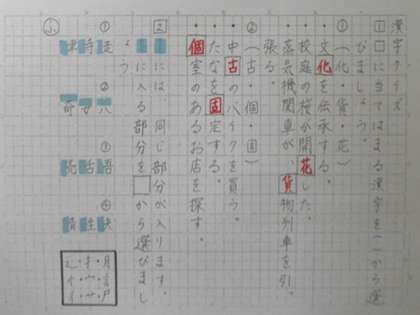 漢字クイズ
1 □に当てはまる漢字を( )から選
びましょう。
① (化・貨・花)
・文化を伝承する。
・校庭の桜が開花した。
・蒸気機関車が、貨物列車を引っ
張る。
② (古・個・固)
・中古のバイクを買う。
・たなを固定する。
・個室のあるお店を探す。
2 には、同じ部分が入ります。
に入る部分を□から選びまし
ょう。
①
②
③
④